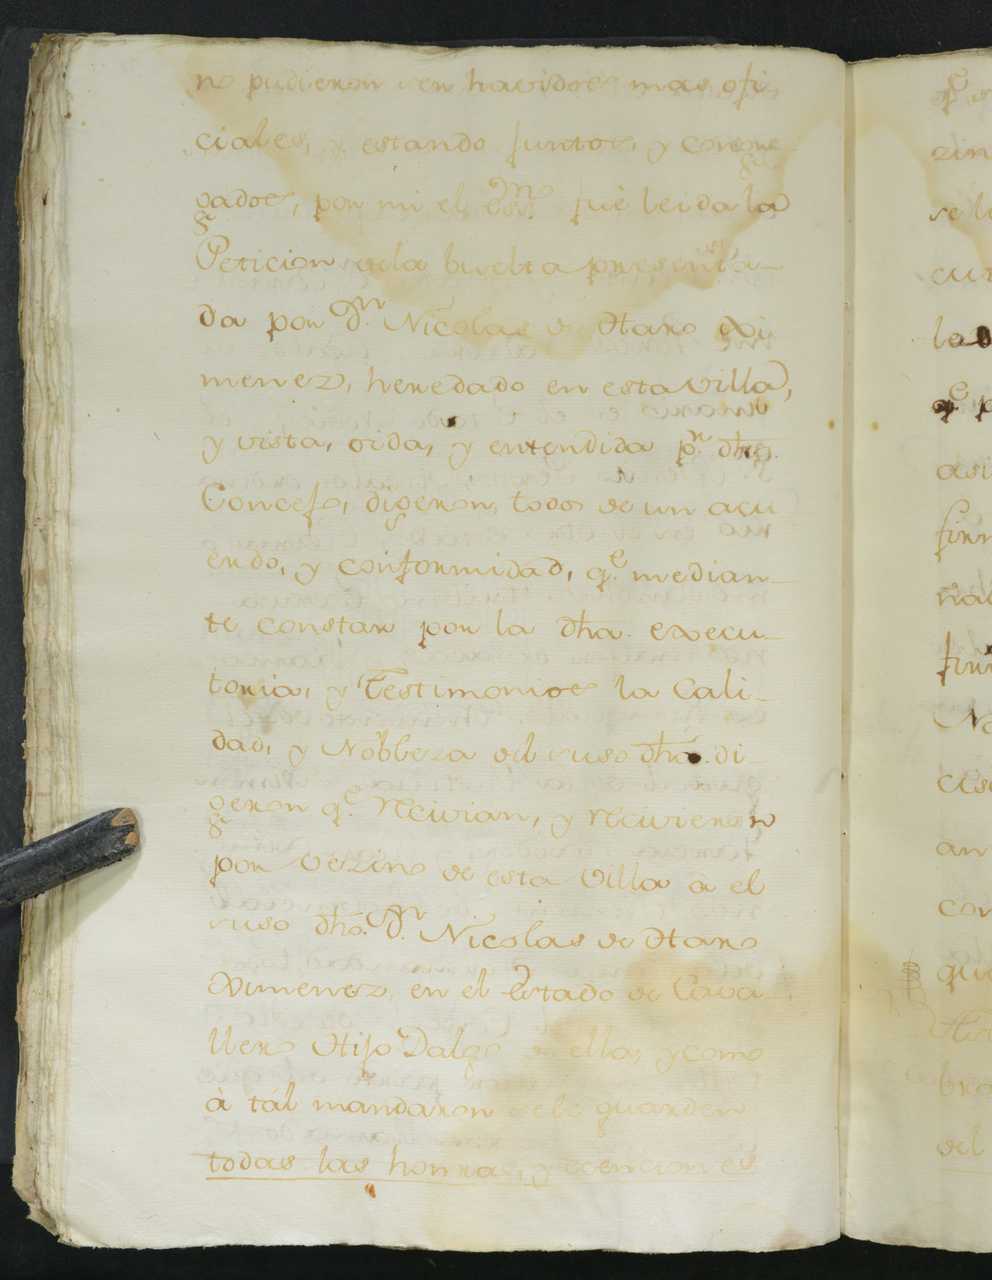 no pudieron ser havidos mas ofi-
ciales, y estando juntos, y congre-
gados, por mi el Esno fuè leida la
Peticion de la buelta presenta-
da por Dn. Nicolas de Haro Xi
menez, heredado en esta Villa,
y vista, oida, y entendida pr. dho.
Concejo, digeron, todos de un acu
erdo, y conformidad, qe. median-
te constar por la dha. execu-
toria, y Testimonios la Cali-
dad, y Nobleza del suso dho. di-
geron qe. recivian, y recivieron
por vezino de esta Villa â el
suso dho. Dn. Nicolas de Haro
Ximenez en el Estado de Cava-
llero Hijo Dalgo ella, y como
â tál mandaron se le guarden
todas las honras, y ecenciones
qe
zin
se le
cur
la
qe p
asi
firm
ña
firm
No
an
con
que
bra
del